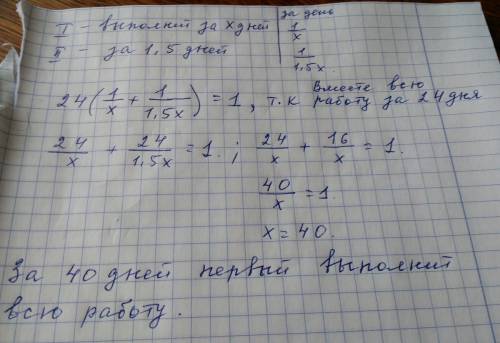 за день
I – выполнит за x дней | 1/x
II – за 1,5 дней | 1/1,5x
24(1/x + 1/1,5x) = 1, т.к Вместе всю работу за 24 дня
24/x + 24/1,5x = 1. ; 24/x + 16/x = 1.
40/x = 1.
x = 40.
За 40 дней первый выполнит
всю работу.